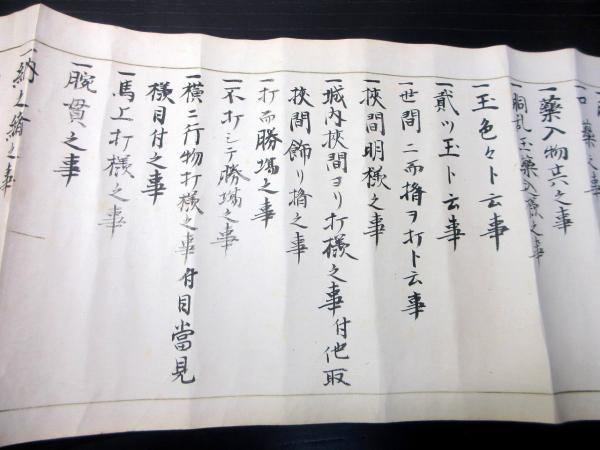 口藥之事
一藥入物六之事
胴乱玉藥入樣之事
一玉色々ト云事
一貳ツ玉ト云事
一世間ニ而搚ヲ打ト云事
一挾間明樣之事
一城内挾間ヨリ打樣之事付他取
挾間飾リ搚之事
一打而勝塲之事
一不打シテ勝塲之事
一横ニ行物打樣之事付目當見
樣目付之事
一馬上打樣之事
一腕貫之事
一納之緒之事